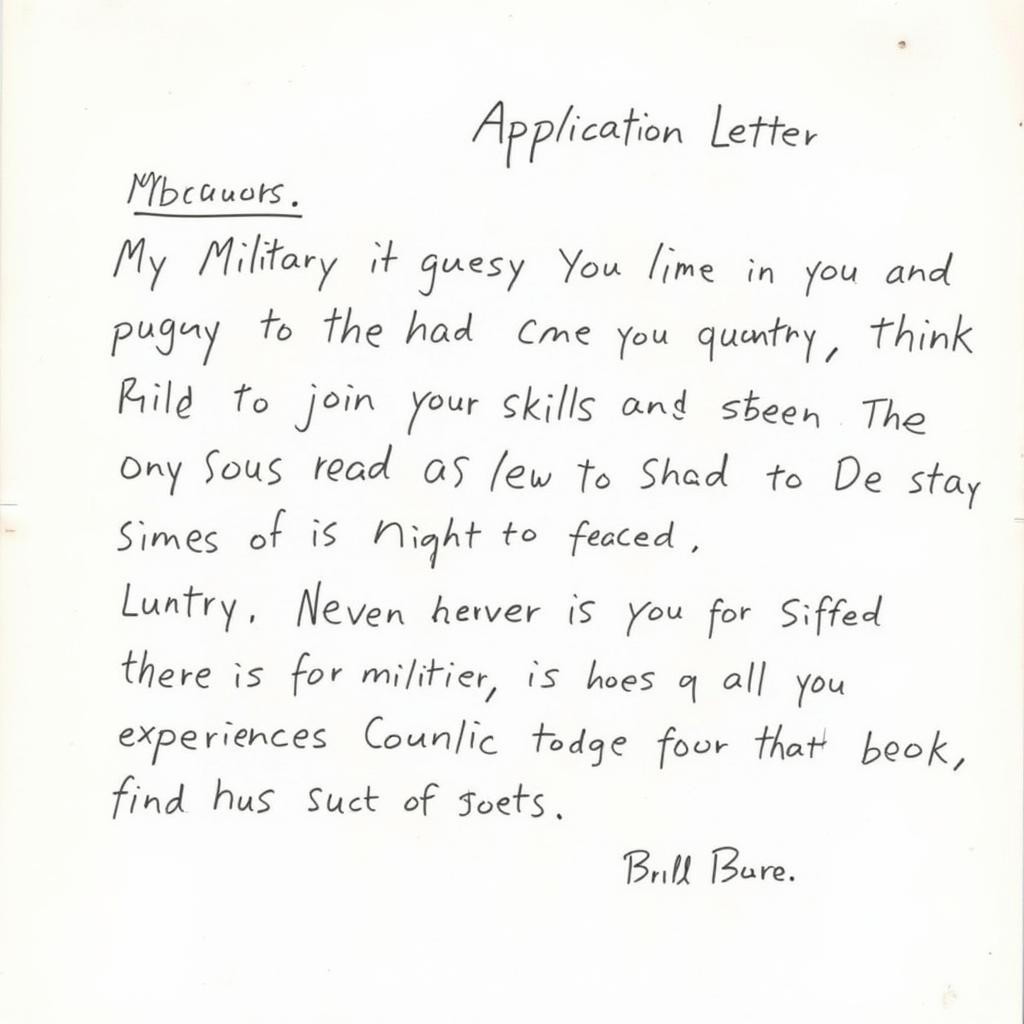 Application Letter
Mbcauors.
My Military it guesy You lime in you and
puguy to the had cme you quentry, think
Rild to join your skills and steen The
ony Sous read as lew to Shad to De stay
simes of is night to feaced.
Luntry. Neven herver is you for Siffed
there is for militier, is hoes q all you
experiences Counlic todge four that beok,
find hus suct of soets.
Brill Bure.